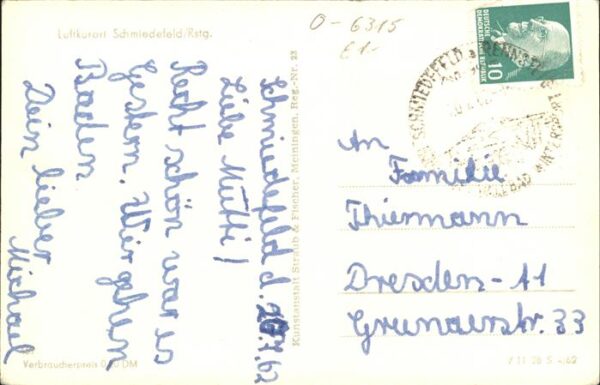 Luftkurort Schmiedefeld/Rstg.
Schmiedefeld d. 20.7.62
Liebe Mutti!
Recht schön war es
Gestern. Wir gehen
Baden.
Dein lieber
Michael
Verbraucherpreis 0,20 DM
Kunstanstalt Straub & Fischer, Meiningen, Reg.-Nr. 23
O-6315
E1-
DEUTSCHE
DEMOKRATISCHE REPUBLIK
10
SCHMIEDEFELD a RENNST
An
Familie
Thiermann
Dresden-A1
Grunaerstr. 33